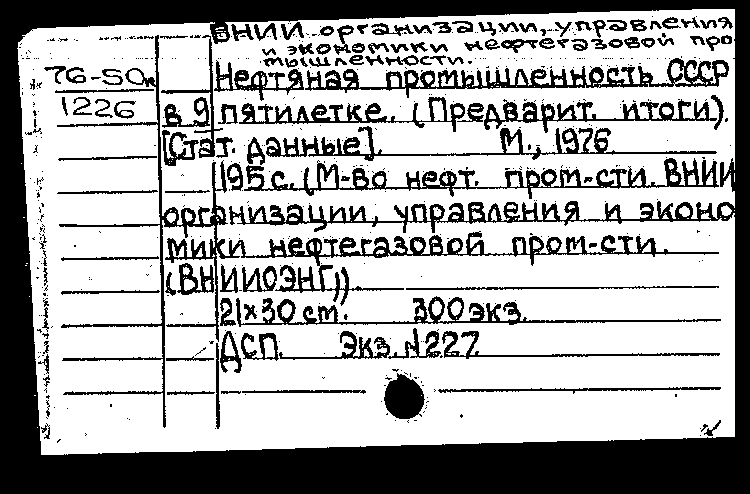 ВНИИ организации, управления
и экономики нефтегазовой про
мышленности.
76-50к Нефтяная промышленность СССР
1226 в 9 пятилетке. (Предварит. итоги).
[Стат. данные]. М., 1976
195 с. (М-во нефт. пром-сти. ВНИИ
организации, управления и эконо
мики нефтегазовой пром-сти.
(ВНИИОЭНГ)).
21×30 ст. 300 экз.
ДСП. Экз. №227